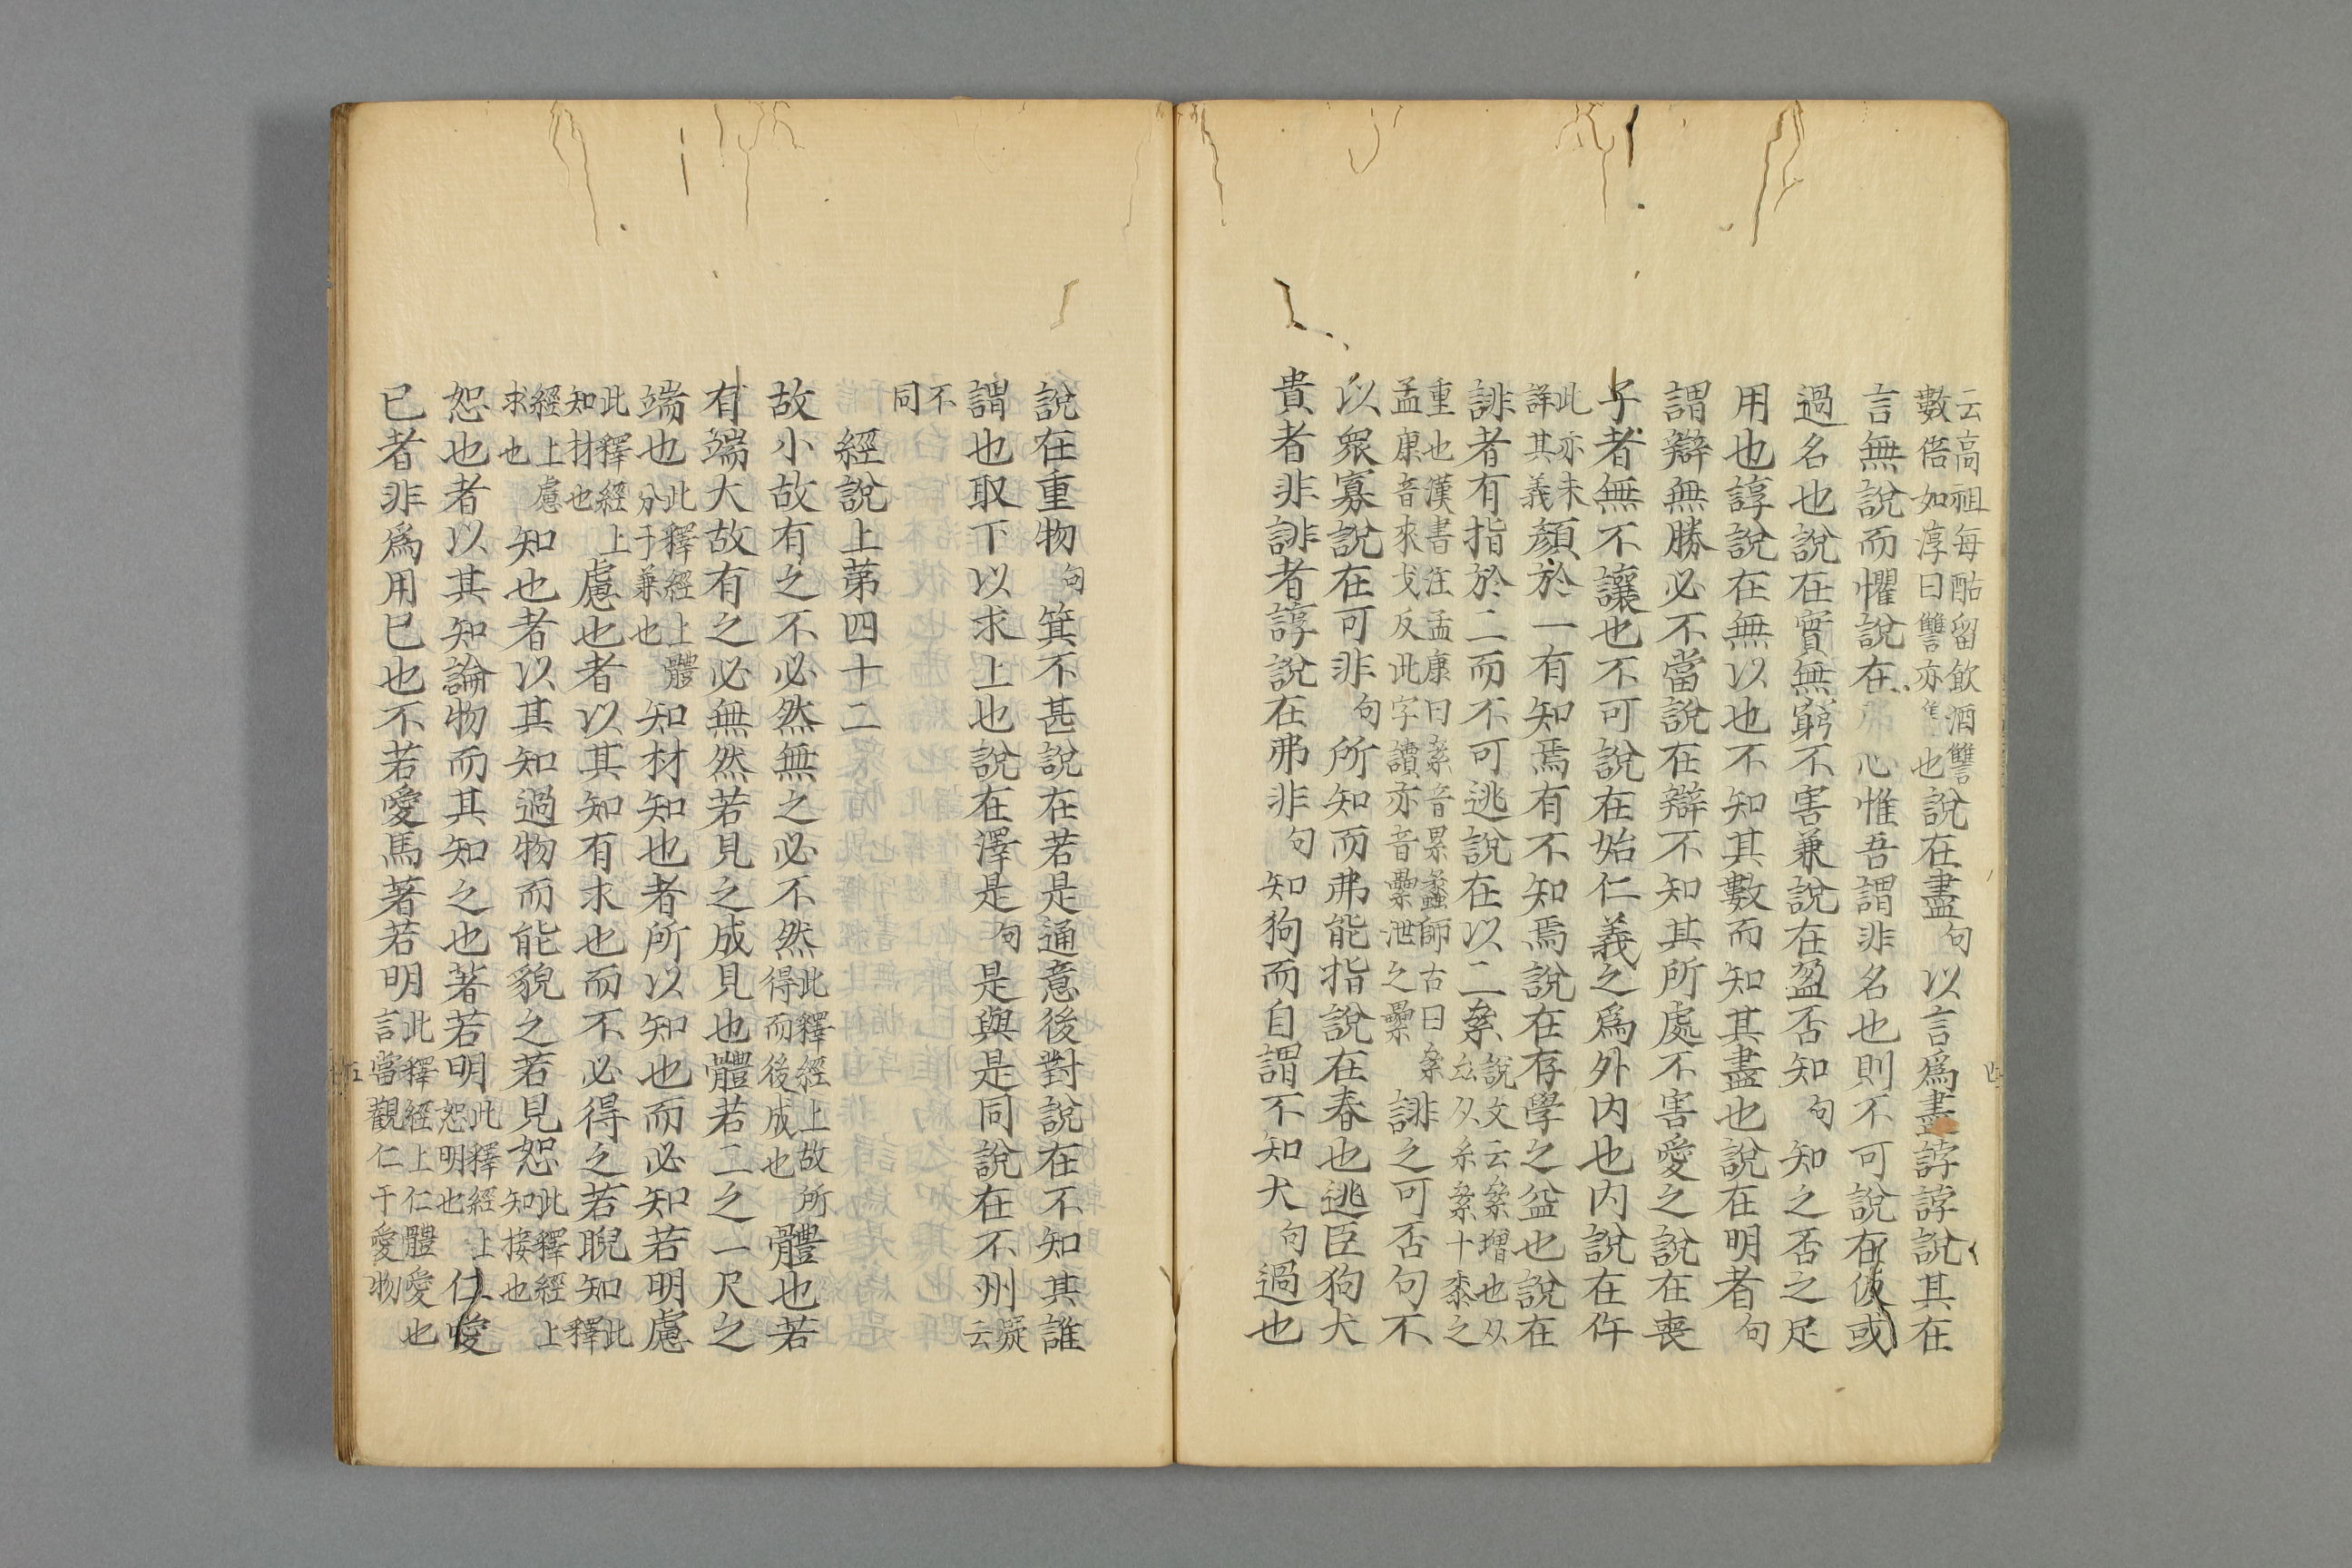 云高祖每酤留飲酒讐
數倍如淳曰讐亦售也說在盡句以言爲盡誖誖說其在
言無說而懼說在弗心惟吾謂非名也則不可說在彼或
過名也說在實無窮不害兼說在盈否知句知之否之足
用也諄說在無以也不知其數而知其盡也說在明者句
謂辯無勝必不當說在辯不知其所處不害愛之說在喪
子者無不讓也不可說在始仁義之爲外内也内說在仵
此亦未
詳其義顏於一有知焉有不知焉說在存學之益也說在
誹者有指於二而不可逃說在以二絫說文云絫增也从
厽从糸絫十黍之
重也漢書注孟康曰絫音累蠡師古曰絫
孟康音來戈反此字讀亦音纍泄之纍誹之可否句不
以衆寡說在可非句所知而弗能指說在春也逃臣狗犬
貴者非誹者諄說在弗非句知狗而自謂不知犬句過也
說在重物句箕不甚說在若是通意後對說在不知其誰
謂也取下以求上也說在澤是句是與是同說在不州疑
云
不
同
經說上第四十二
故小故有之不必然無之必不然此釋經上故所
得而後成也體也若
有端大故有之必無然若見之成見也體若二之一尺之
端也此釋經上體
分于兼也知材知也者所以知也而必知若明慮
此釋經上
知材也慮也者以其知有求也而不必得之若睨知此
釋
經上慮
求也知也者以其知過物而能貌之若見恕此釋經上
知接也
恕也者以其知論物而其知之也著若明此釋經上
恕明也仁愛
已者非爲用已也不若愛馬著若明此釋經上仁體愛也
言當觀仁于愛物